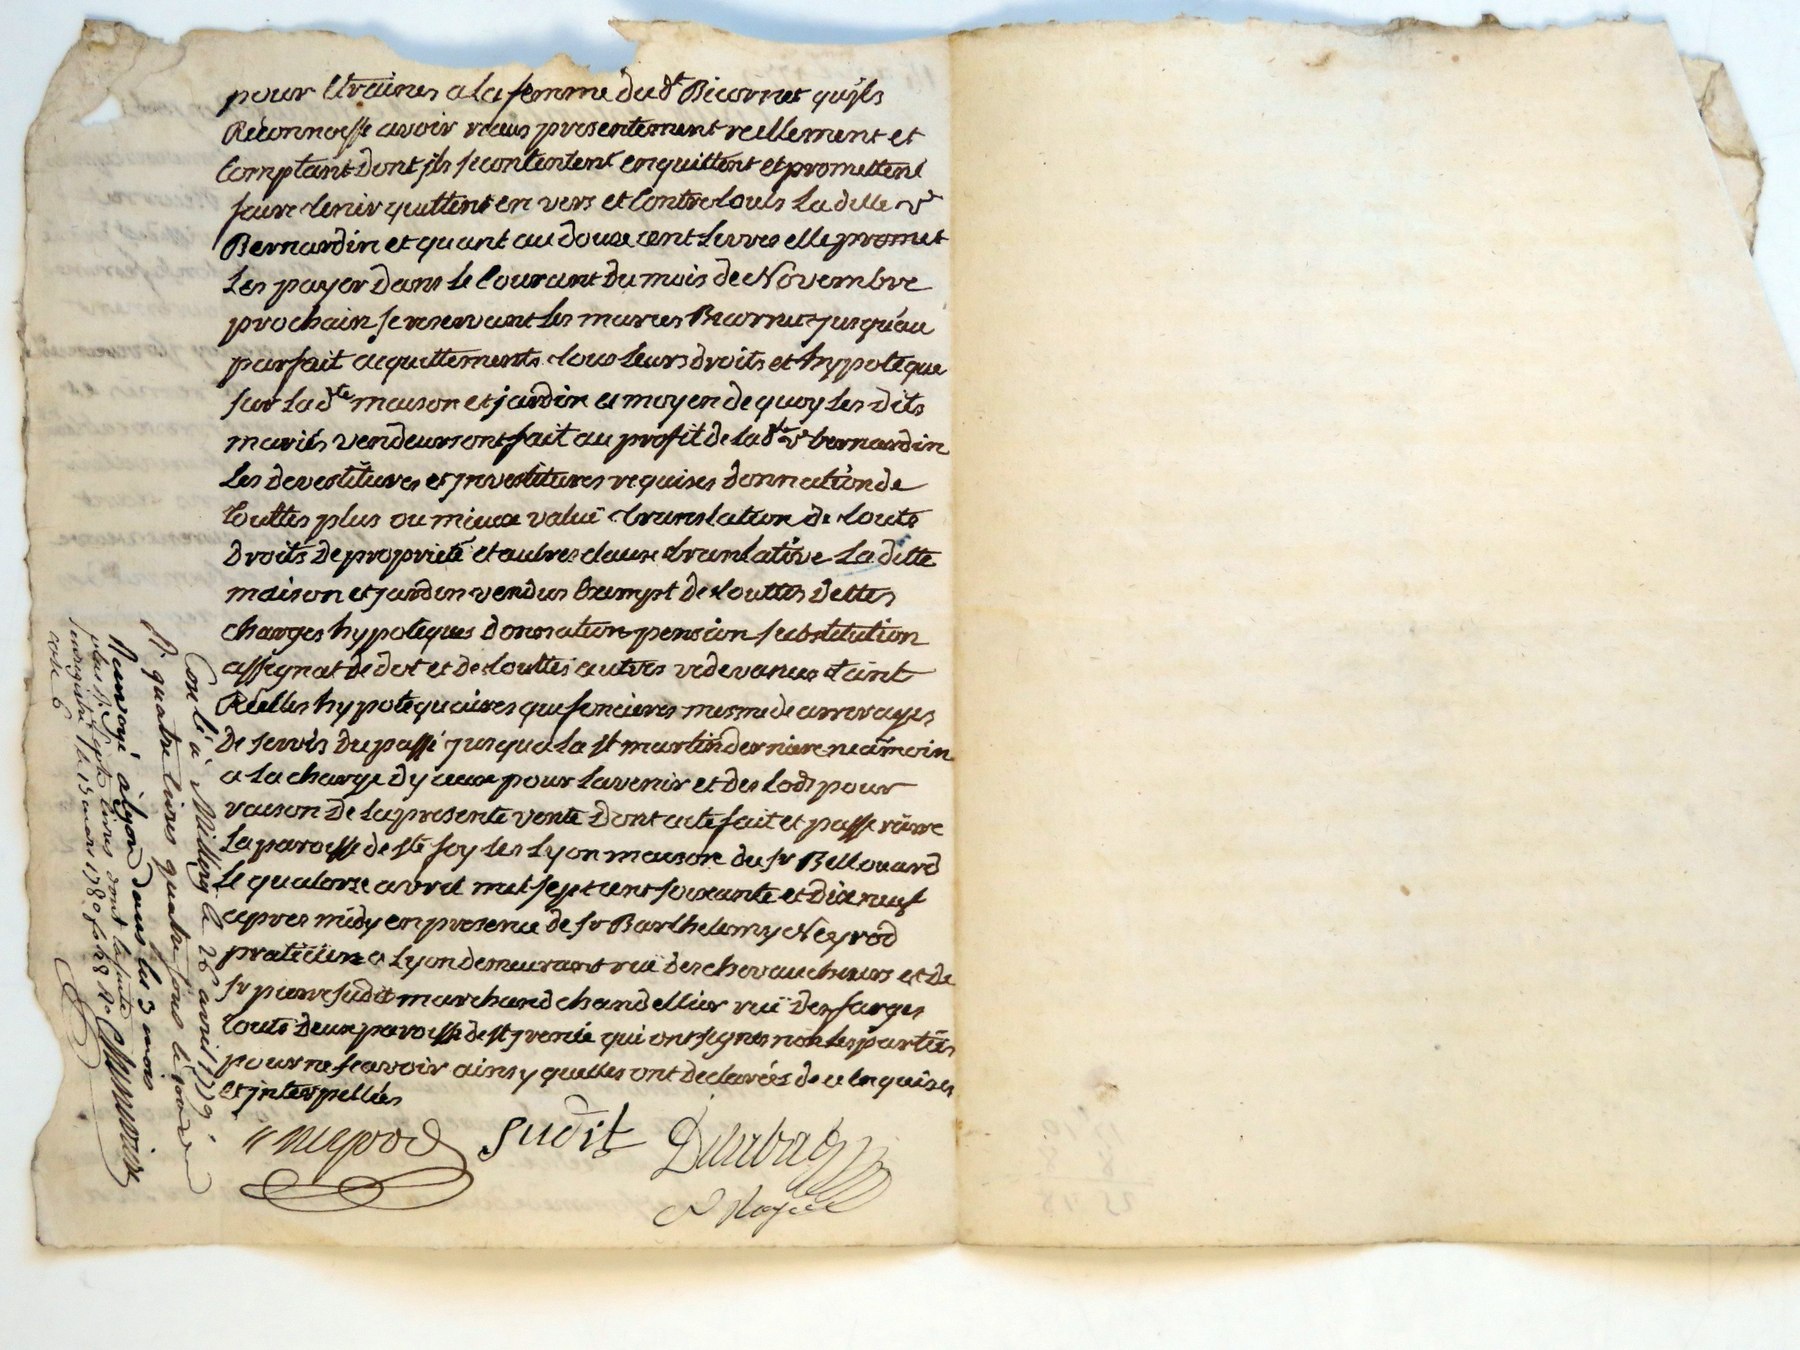 pour Etraines a la femme dud.t Bicornet qujls
Reconnoisse avoir reçus presentement reellement et
Comptant Dont jls se contentent en quittent et promettent
faire tenir quittent en vers et Contre touts La ditte v.e
Bernardin et quant au douze cent Livres elle promet
Les payer Dans le Courant Du mois de Novembre
prochain se reservant Les maries Bicornet jusqu'au
parfait acquittements tous Leurs droits et hypoteque
sur La d.te maison et jardin au moyen de quoy Les dits
mariés vendeurs ont fait au profit de la d.te v.e bernardin
Les devestitures et jnvestitures requises donnation de
touttes plus ou mieux valuë translation de touts
Droits De proprieté et autres clause translative La ditte
maison et jardin vendus Exempt de touttes dettes
charges hypoteques donnation pension substitution
assignat de dot et de touttes autres redevances tant
Réelles hypotequaires que foncieres mesme de arrerages
De servis Du passé jusqua La st martin derniere neamoin
a La charge dy ceux pour Lavenir et des Lods pour
raison De La presente vente Dont acte fait et passe riere
La paroisse de ste foy Les Lyon maison du sr Bellouard
Le quatorze avril mil sept cent soixante et dix neuf
apres midy en presence de sr Barthelemy Neyrod
praticien a Lyon demeurant ruë des chevaucheurs et De
sr pierre sudit marchand chandellier ruë Des farges
touts Deux paroisse de st jrenée qui ont signes non Les parties
pour ne sçavoir ainsy quelles ont declarées de ce Enquises
Et jnterpellées
Neyrod Sudit
Con.lé à Millery le 26 avril 1779
R. quatre livres quatre sous
Renvoyé à Lyon dans les 3 mois
plus sept livres dont la suite
enregistré le 15 mars 1780 f.o 28 R.o
case 6